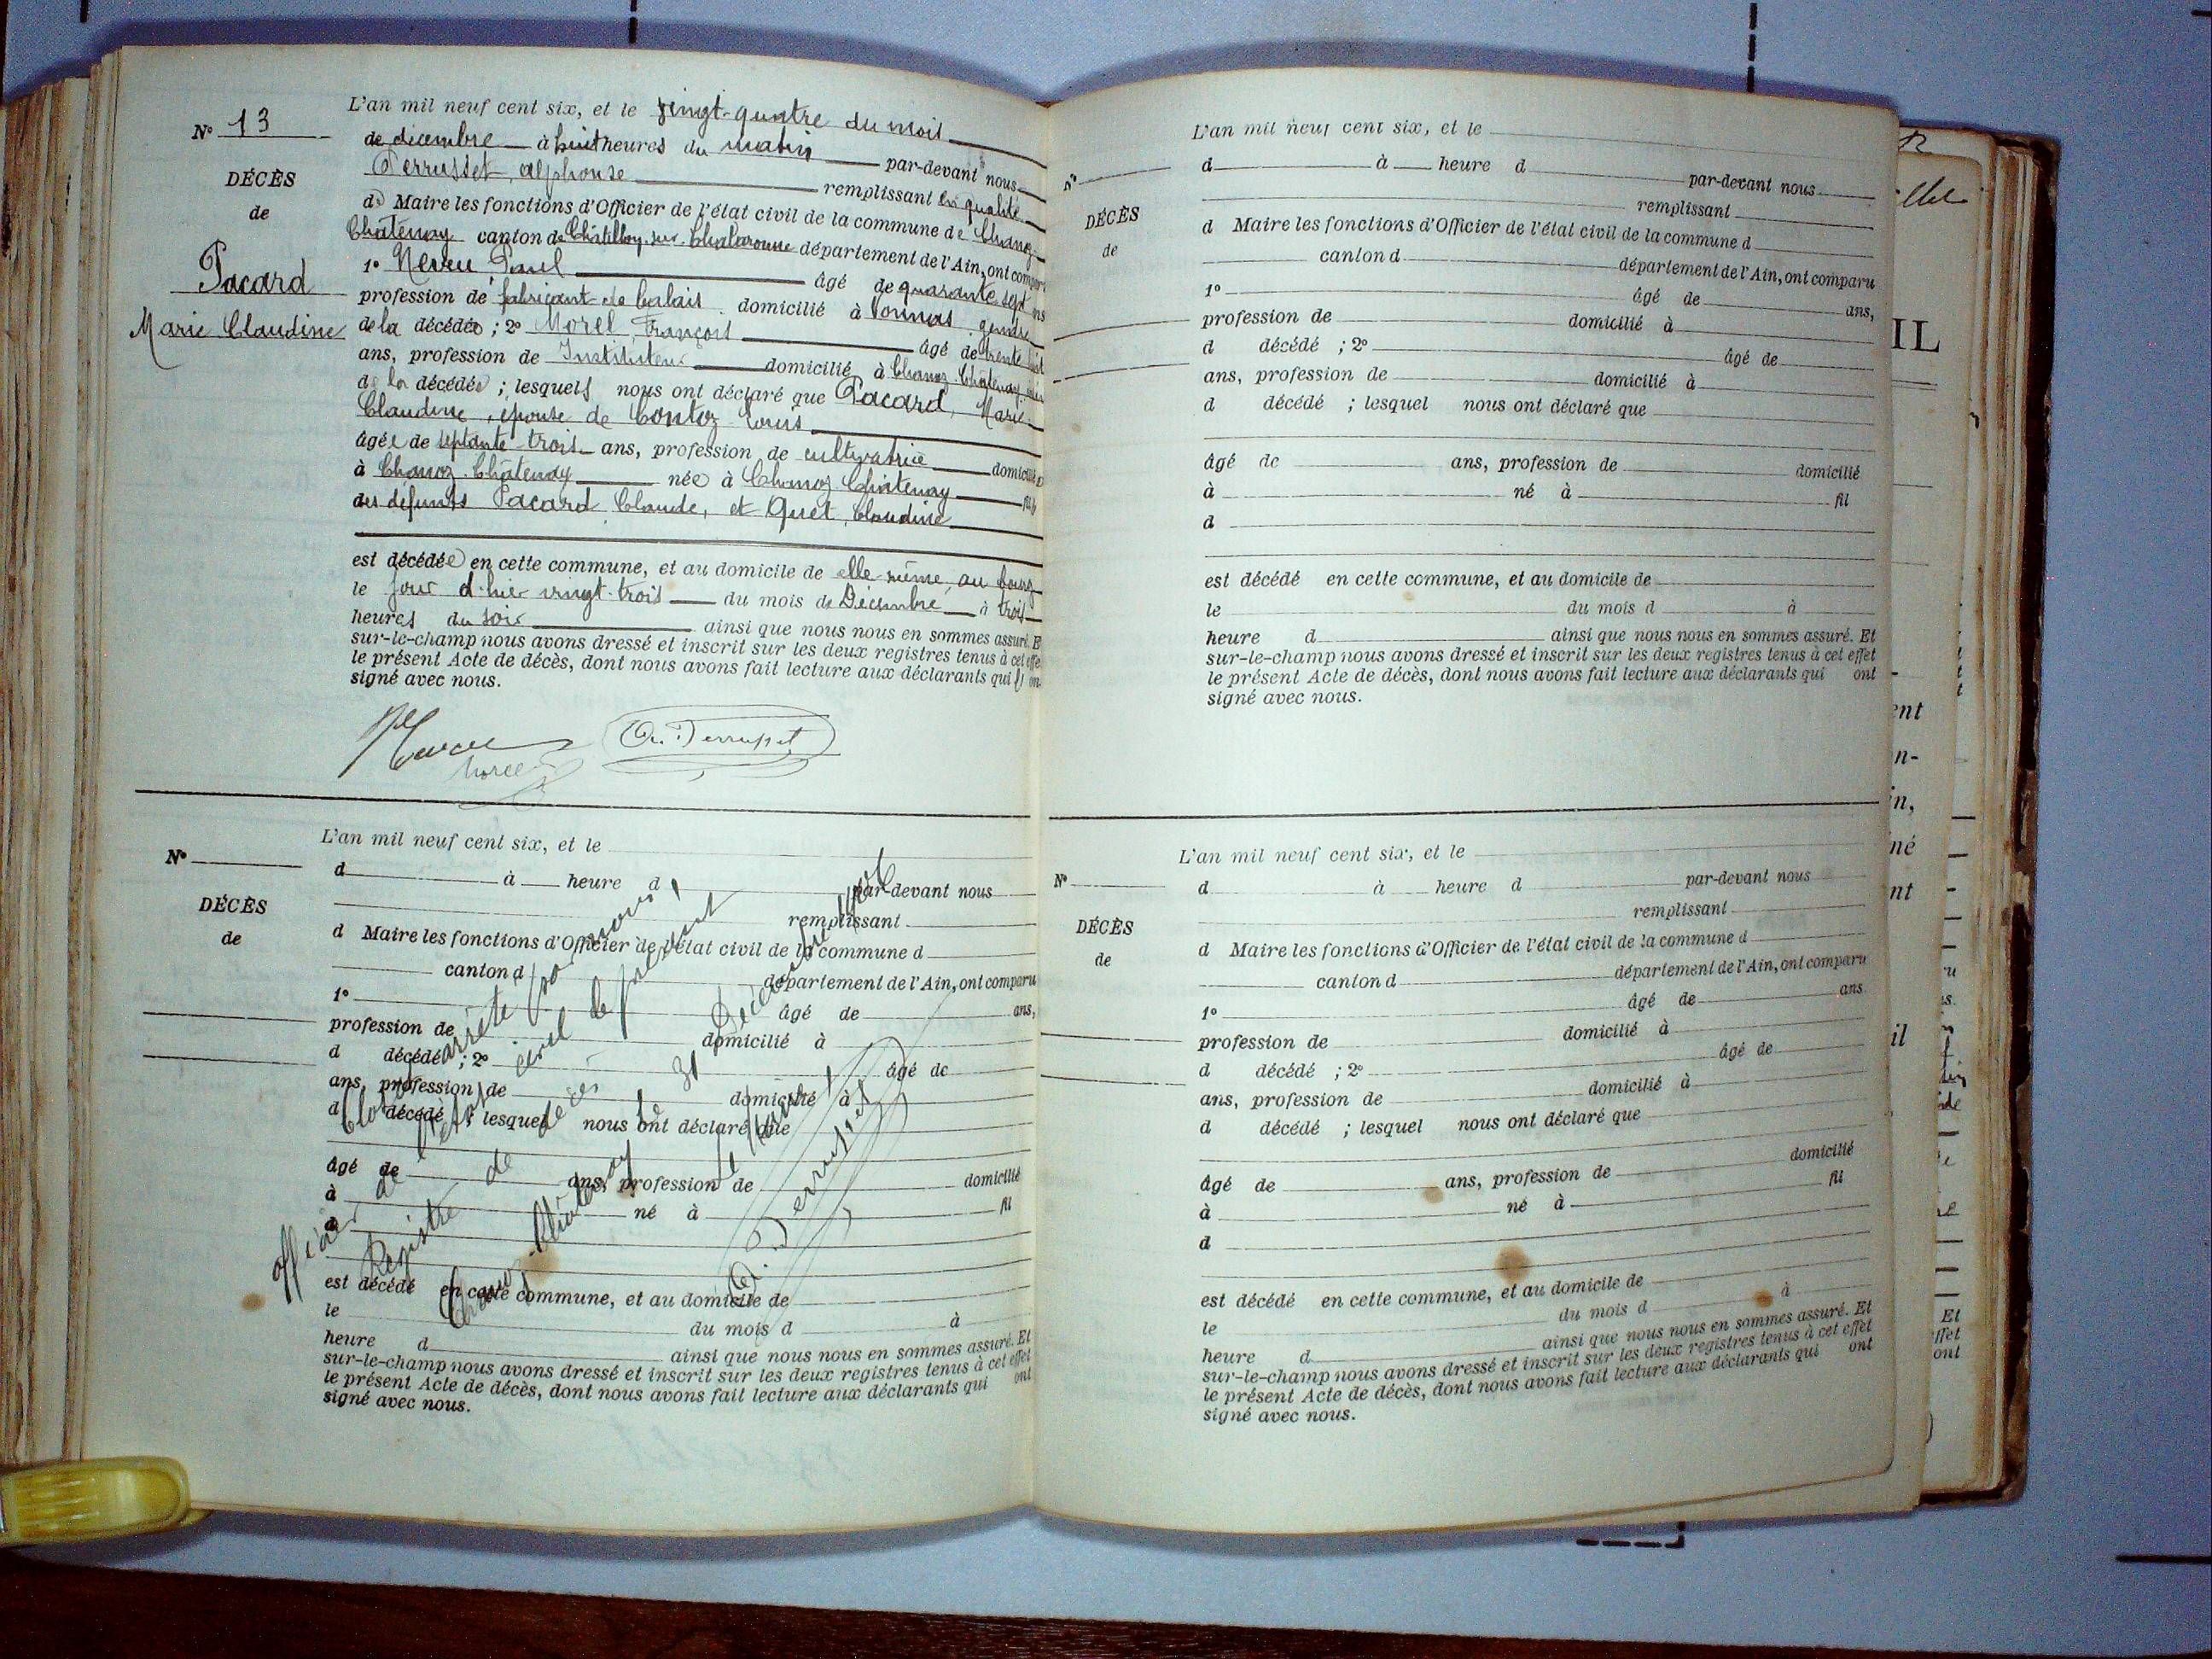 N° 13
DÉCÈS
de
Pacard
Marie Claudine
L'an mil neuf cent six, et le vingt-quatre du mois
de décembre à huit heures du matin par-devant nous
Perrusset, alphonse remplissant en qualité
de Maire les fonctions d'Officier de l'état civil de la commune de Chanoz-
Châtenay canton de Châtillon-sur-Chalaronne département de l'Ain, ont comparu
1° Neveu Paul âgé de quarante sept ans
profession de fabricant de balais domicilié à Vonnas, gendre
de la décédée ; 2° Morel, François âgé de trente huit
ans, profession de Instituteur domicilié à Chanoz-Châtenay
de la décédée ; lesquels nous ont déclaré que Pacard, Marie
Claudine, épouse de Contoz Louis
âgée de septante trois ans, profession de cultivatrice domiciliée
à Chanoz-Châtenay née à Chanoz-Châtenay fille
des défunts Pacard Claude, et Quet, Claudine
est décédée en cette commune, et au domicile de elle-même, au bourg
le jour d'hier vingt-trois du mois de Décembre à trois
heures du soir ainsi que nous nous en sommes assuré. Et
sur-le-champ nous avons dressé et inscrit sur les deux registres tenus à cet effet
le présent Acte de décès, dont nous avons fait lecture aux déclarants qui ont
signé avec nous.
Neveu
Morel
A. Perrusset
N°
DÉCÈS
de
L'an mil neuf cent six, et le
d à heure d par-devant nous
remplissant
d Maire les fonctions d'Officier de l'état civil de la commune d
canton d département de l'Ain, ont comparu
1° âgé de ans,
profession de domicilié à
d décédé ; 2° âgé de
ans, profession de domicilié à
d décédé ; lesquel nous ont déclaré que
âgé de ans, profession de domicilié
à né à fil
d
est décédé en cette commune, et au domicile de
le du mois d à
heure d ainsi que nous nous en sommes assuré. Et
sur-le-champ nous avons dressé et inscrit sur les deux registres tenus à cet effet
le présent Acte de décès, dont nous avons fait lecture aux déclarants qui ont
signé avec nous.
Clos et arrêté par nous,
officier de l'état civil le présent
Registre de décès
Chanoz-Châtenay le 31 Décembre
Le Maire
A. Perrusset
N°
DÉCÈS
de
L'an mil neuf cent six, et le
d à heure d par-devant nous
remplissant
d Maire les fonctions d'Officier de l'état civil de la commune d
canton d département de l'Ain, ont comparu
1° âgé de ans,
profession de domicilié à
d décédé ; 2° âgé de
ans, profession de domicilié à
d décédé ; lesquel nous ont déclaré que
âgé de ans, profession de domicilié
à né à fil
d
est décédé en cette commune, et au domicile de
le du mois d à
heure d ainsi que nous nous en sommes assuré. Et
sur-le-champ nous avons dressé et inscrit sur les deux registres tenus à cet effet
le présent Acte de décès, dont nous avons fait lecture aux déclarants qui ont
signé avec nous.
N°
DÉCÈS
de
L'an mil neuf cent six, et le
d à heure d par-devant nous
remplissant
d Maire les fonctions d'Officier de l'état civil de la commune d
canton d département de l'Ain, ont comparu
1° âgé de ans
profession de domicilié à
d décédé ; 2° âgé de
ans, profession de domicilié à
d décédé ; lesquel nous ont déclaré que
âgé de ans, profession de domicilié
à né à fil
d
est décédé en cette commune, et au domicile de
le du mois d à
heure d ainsi que nous nous en sommes assuré. Et
sur-le-champ nous avons dressé et inscrit sur les deux registres tenus à cet effet
le présent Acte de décès, dont nous avons fait lecture aux déclarants qui ont
signé avec nous.
IL
ent
n-
in,
né
nt
il
Et
effet
ont